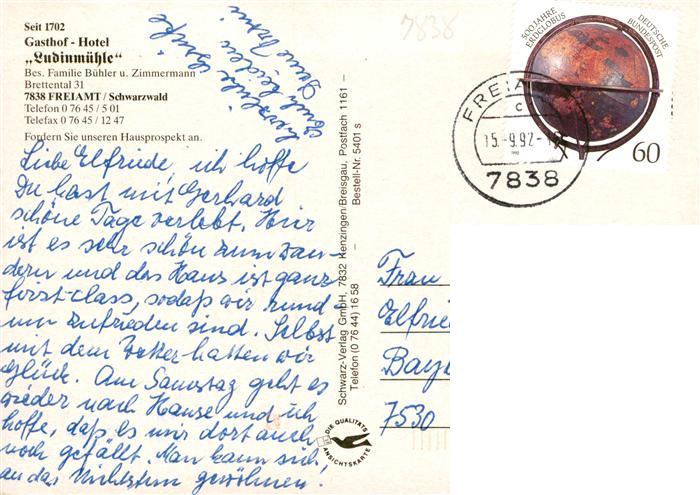 Seit 1702
Gasthof - Hotel
„Ludinmühle“
Bes. Familie Bühler u. Zimmermann
Brettental 31
7838 FREIAMT / Schwarzwald
Telefon 0 76 45 / 5 01
Telefax 0 76 45 / 12 47
Fordern Sie unseren Hausprospekt an.
Liebe Elfriede, ich hoffe
Du hast mit Gerhard
schöne Tage verlebt. Hier
ist es sehr schön zum Wan-
dern und das Haus ist ganz
first-class, sodaß wir rund-
um zufrieden sind. Selbst
mit dem Wetter hatten wir
Glück. Am Samstag geht es
wieder nach Hause und ich
hoffe, daß es mir dort auch
noch gefällt. Man kann sich
an das Nichtstun gewöhnen.
Herzliche Grüße
Euch beiden
Deine
Schwarz-Verlag GmbH, 7832 Kenzingen/Breisgau, Postfach 1161 –
Telefon (0 76 44) 16 58 – Bestell-Nr. 5401 s
DIE QUALITÄTS
ANSICHTSKARTE
7838
500 JAHRE
ERDGLOBUS
DEUTSCHE
BUNDESPOST
60
FREIAMT
c
15.-9.92-1
7838
Frau
Elfrie
Baye
7530